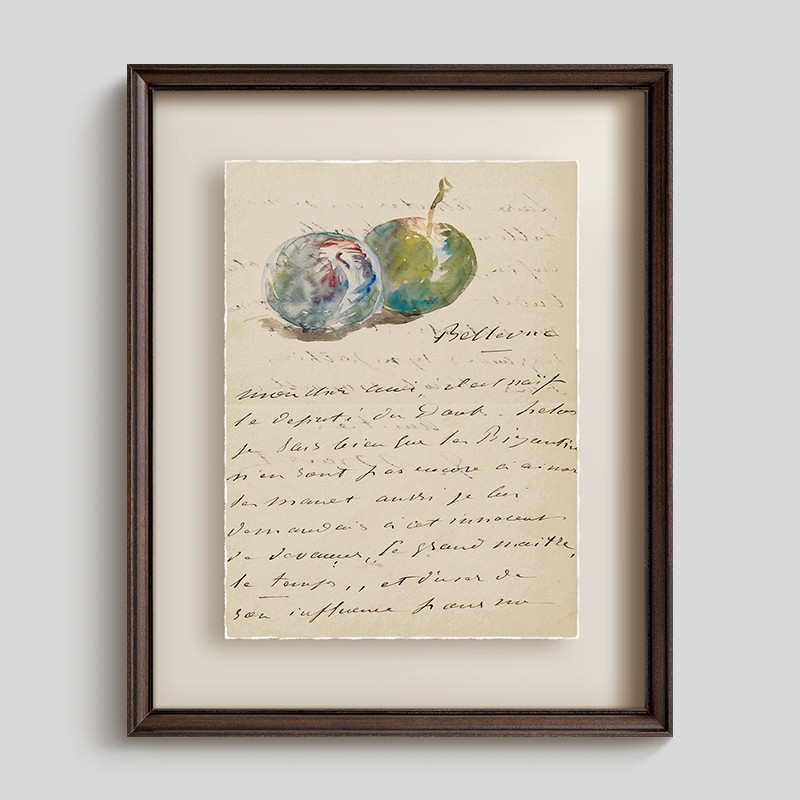 Bellevue
mon cher ami, il est naïf
le député du Doub. helas
je sais bien que les Bizantins
n'en sont pas encore à aimer
les manet aussi je lui
demandais à cet innocent
de devancer, "le grand maître,
le temps,, et d'user de
son influence pour me